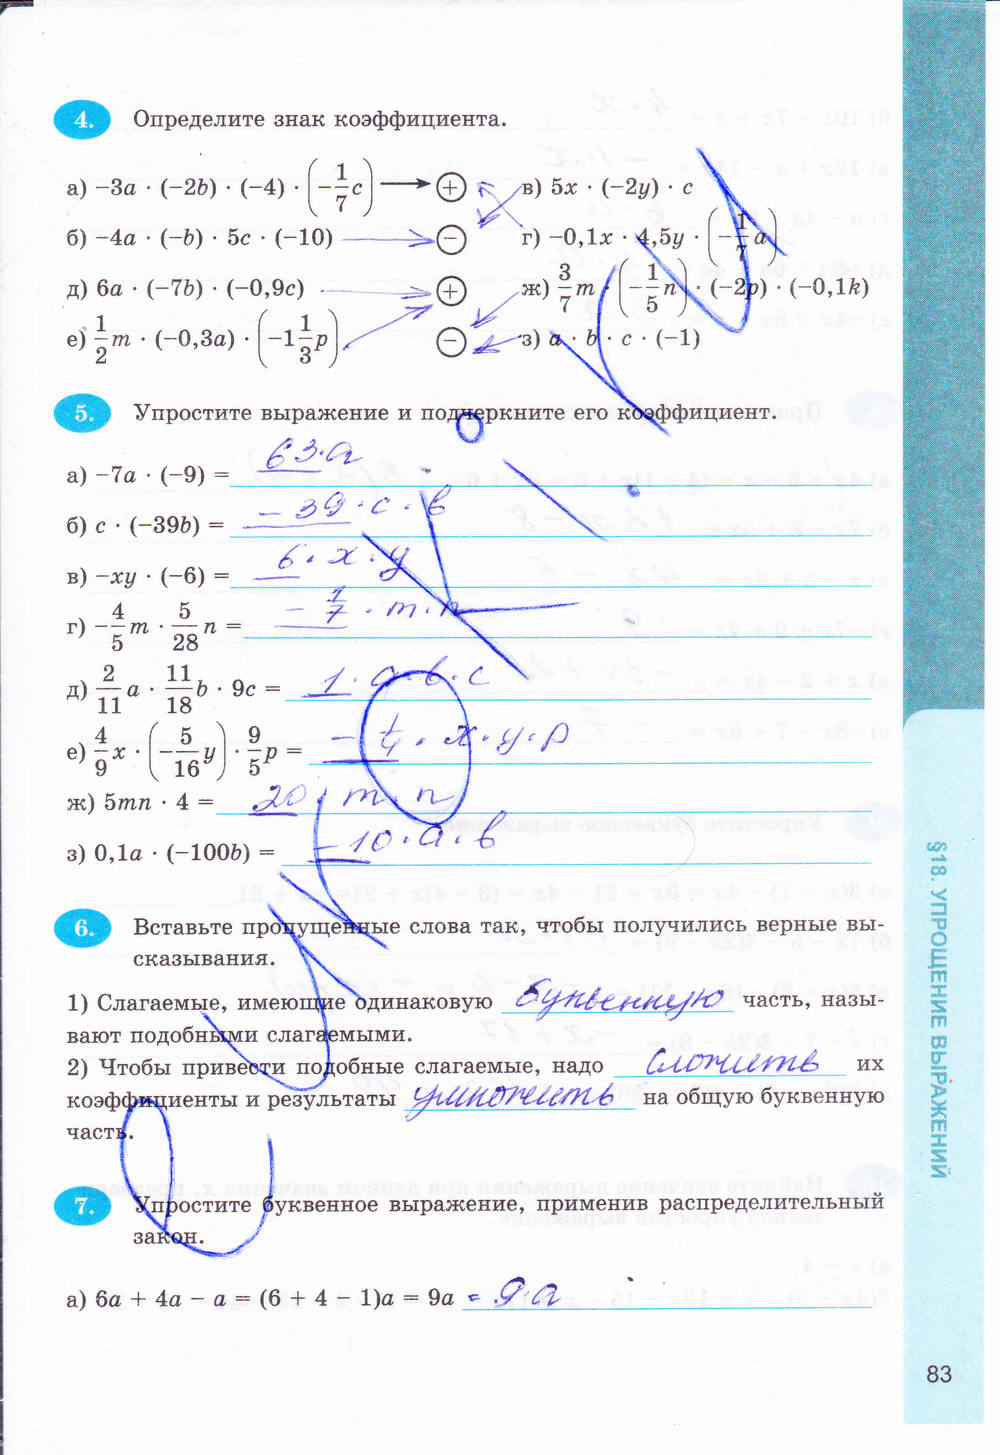 4. Определите знак коэффициента.
а) −3a · (−2b) · (−4) · (−1/7 c) → + в) 5x · (−2y) · c
б) −4a · (−b) · 5c · (−10) − г) −0,1x · 4,5y · (−1/7 a)
д) 6a · (−7b) · (−0,9c) + ж) 3/7 m · (−1/5 n) · (−2p) · (−0,1k)
е) 1/2 m · (−0,3a) · (−1 1/3 p) − з) a · b · c · (−1)
5. Упростите выражение и подчеркните его коэффициент.
а) −7a · (−9) = 63·a
б) c · (−39b) = −39·c·в
в) −xy · (−6) = 6·x·y
г) −4/5 m · 5/28 n = −1/7·m·n
д) 2/11 a · 11/18 b · 9c = 1·a·в·c
е) 4/9 x · (−5/16 y) · 9/5 p = −1/4·x·y·p
ж) 5mn · 4 = 20·m·n
з) 0,1a · (−100b) = −10·a·в
6. Вставьте пропущенные слова так, чтобы получились верные вы-
сказывания.
1) Слагаемые, имеющие одинаковую буквенную часть, назы-
вают подобными слагаемыми.
2) Чтобы привести подобные слагаемые, надо сложить их
коэффициенты и результаты умножить на общую буквенную
часть.
7. Упростите буквенное выражение, применив распределительный
закон.
а) 6a + 4a − a = (6 + 4 − 1)a = 9a = 9·a
§18. УПРОЩЕНИЕ ВЫРАЖЕНИЙ
83